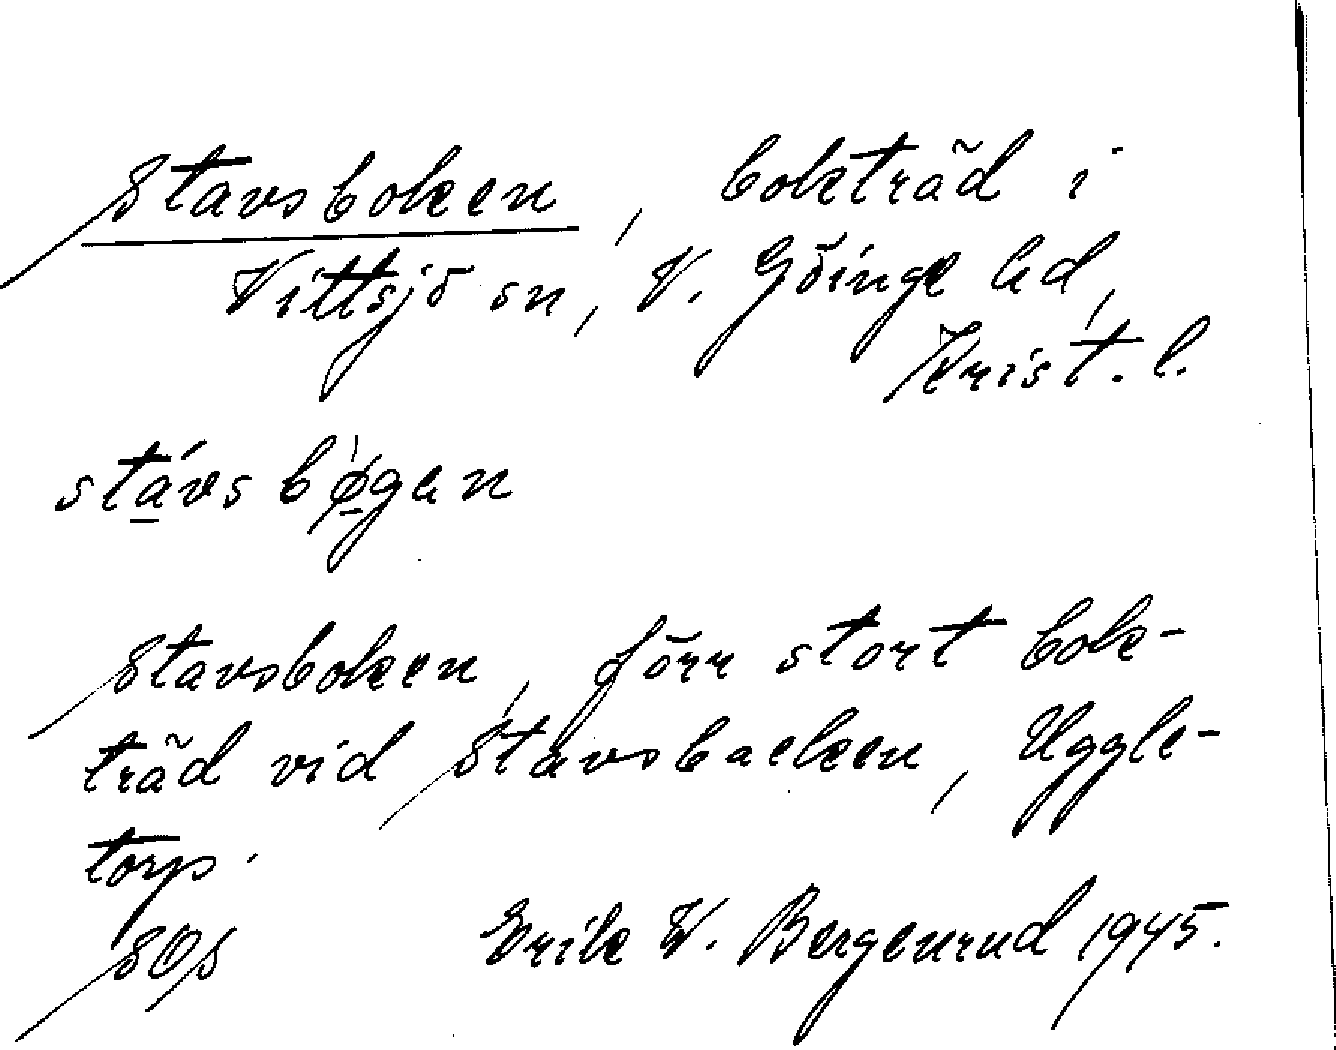 Stavsboken, bokträd i
Vittsjö sn, V. Göinge hd,
Krist. l.
stávs bø̀gan
Stavsboken, förr stort bok-
träd vid Stavsbacken, Uggle-
torp.
SOS Erik W. Bergenrud 1945.